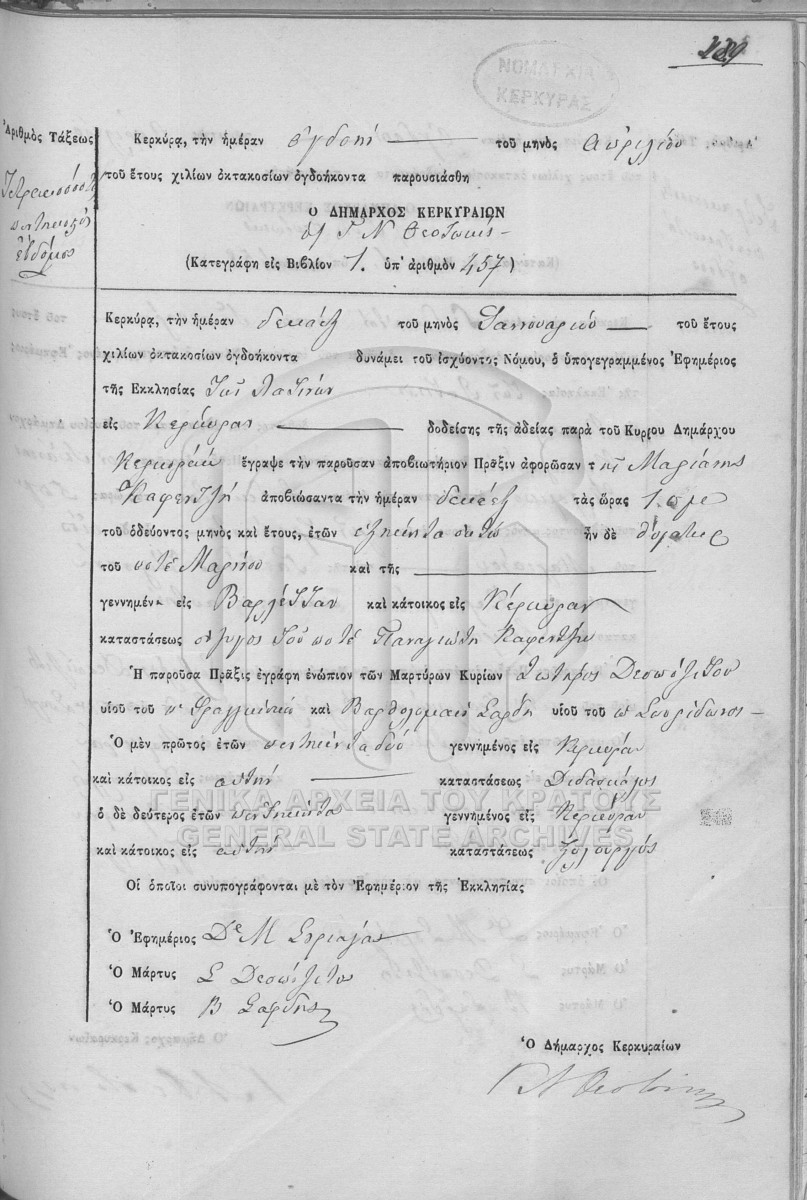 289
ΝΟΜΑΡΧΙΑ
ΚΕΡΚΥΡΑΣ
Ἀριθμὸς Τάξεως
Τετρακοσιοστὸς
πεντηκοστὸς
ἕβδομος
Κερκύρᾳ, τὴν ἡμέραν ὀγδόην τοῦ μηνὸς Ἀπριλίου
τοῦ ἔτους χιλίων ὀκτακοσίων ὀγδοήκοντα παρουσιάσθη
Ὁ ΔΗΜΑΡΧΟΣ ΚΕΡΚΥΡΑΙΩΝ
Γ Ν Θεοτόκης
(Κατεγράφη εἰς Βιβλίον 1. ὑπ' ἀριθμὸν 457)
Κερκύρᾳ, τὴν ἡμέραν δεκάεξ τοῦ μηνὸς Ἰαννουαρίου τοῦ ἔτους
χιλίων ὀκτακοσίων ὀγδοήκοντα δυνάμει τοῦ ἰσχύοντος Νόμου, ὁ ὑπογεγραμμένος Ἐφημέριος
τῆς Ἐκκλησίας τῶν Λατίνων
εἰς Κέρκυραν δοθείσης τῆς ἀδείας παρὰ τοῦ Κυρίου Δημάρχου
Κερκυραίων ἔγραψε τὴν παροῦσαν ἀποβιωτήριον Πρᾶξιν ἀφορῶσαν τῆς Μαριάνης
Καφεντζῆ ἀποβιώσαντα τὴν ἡμέραν δεκάεξ τὰς ὥρας 1. π μ
τοῦ ὁδεύοντος μηνὸς καὶ ἔτους, ἐτῶν ἑξήκοντα ὀκτὼ ἦν δὲ θυγάτηρ
τοῦ ποτὲ Μαρίνου καὶ τῆς
γεννημέν εἰς Βαλλέτταν καὶ κάτοικος εἰς Κέρκυραν
καταστάσεως σύζυγος τοῦ ποτὲ Παναγιώτη Καφεντζῆ
Ἡ παροῦσα Πρᾶξις ἐγράφη ἐνώπιον τῶν Μαρτύρων Κυρίων Σωτῆρος Δεσπόζιτου
υἱοῦ τοῦ π Φραγκίσκου καὶ Βαρθολομαίου Σάρδη υἱοῦ τοῦ π Σπυρίδωνος
Ὁ μὲν πρῶτος ἐτῶν πεντήκοντα δύο γεννημένος εἰς Κέρκυραν
καὶ κάτοικος εἰς αὐτὴν καταστάσεως Διδάσκαλος
ὁ δὲ δεύτερος ἐτῶν πεντήκοντα γεννημένος εἰς Κέρκυραν
καὶ κάτοικος εἰς αὐτὴν καταστάσεως ξυλουργός
Οἱ ὁποῖοι συνυπογράφονται μὲ τὸν Ἐφημέριον τῆς Ἐκκλησίας
Ὁ Ἐφημέριος Dε Μ Σπριαγας
Ὁ Μάρτυς Σ Δεσπόζιτος
Ὁ Μάρτυς Β Σάρδης
Ὁ Δήμαρχος Κερκυραίων
Γ Ν Θεοτόκης
ΓΕΝΙΚΑ ΑΡΧΕΙΑ ΤΟΥ ΚΡΑΤΟΥΣ
GENERAL STATE ARCHIVES